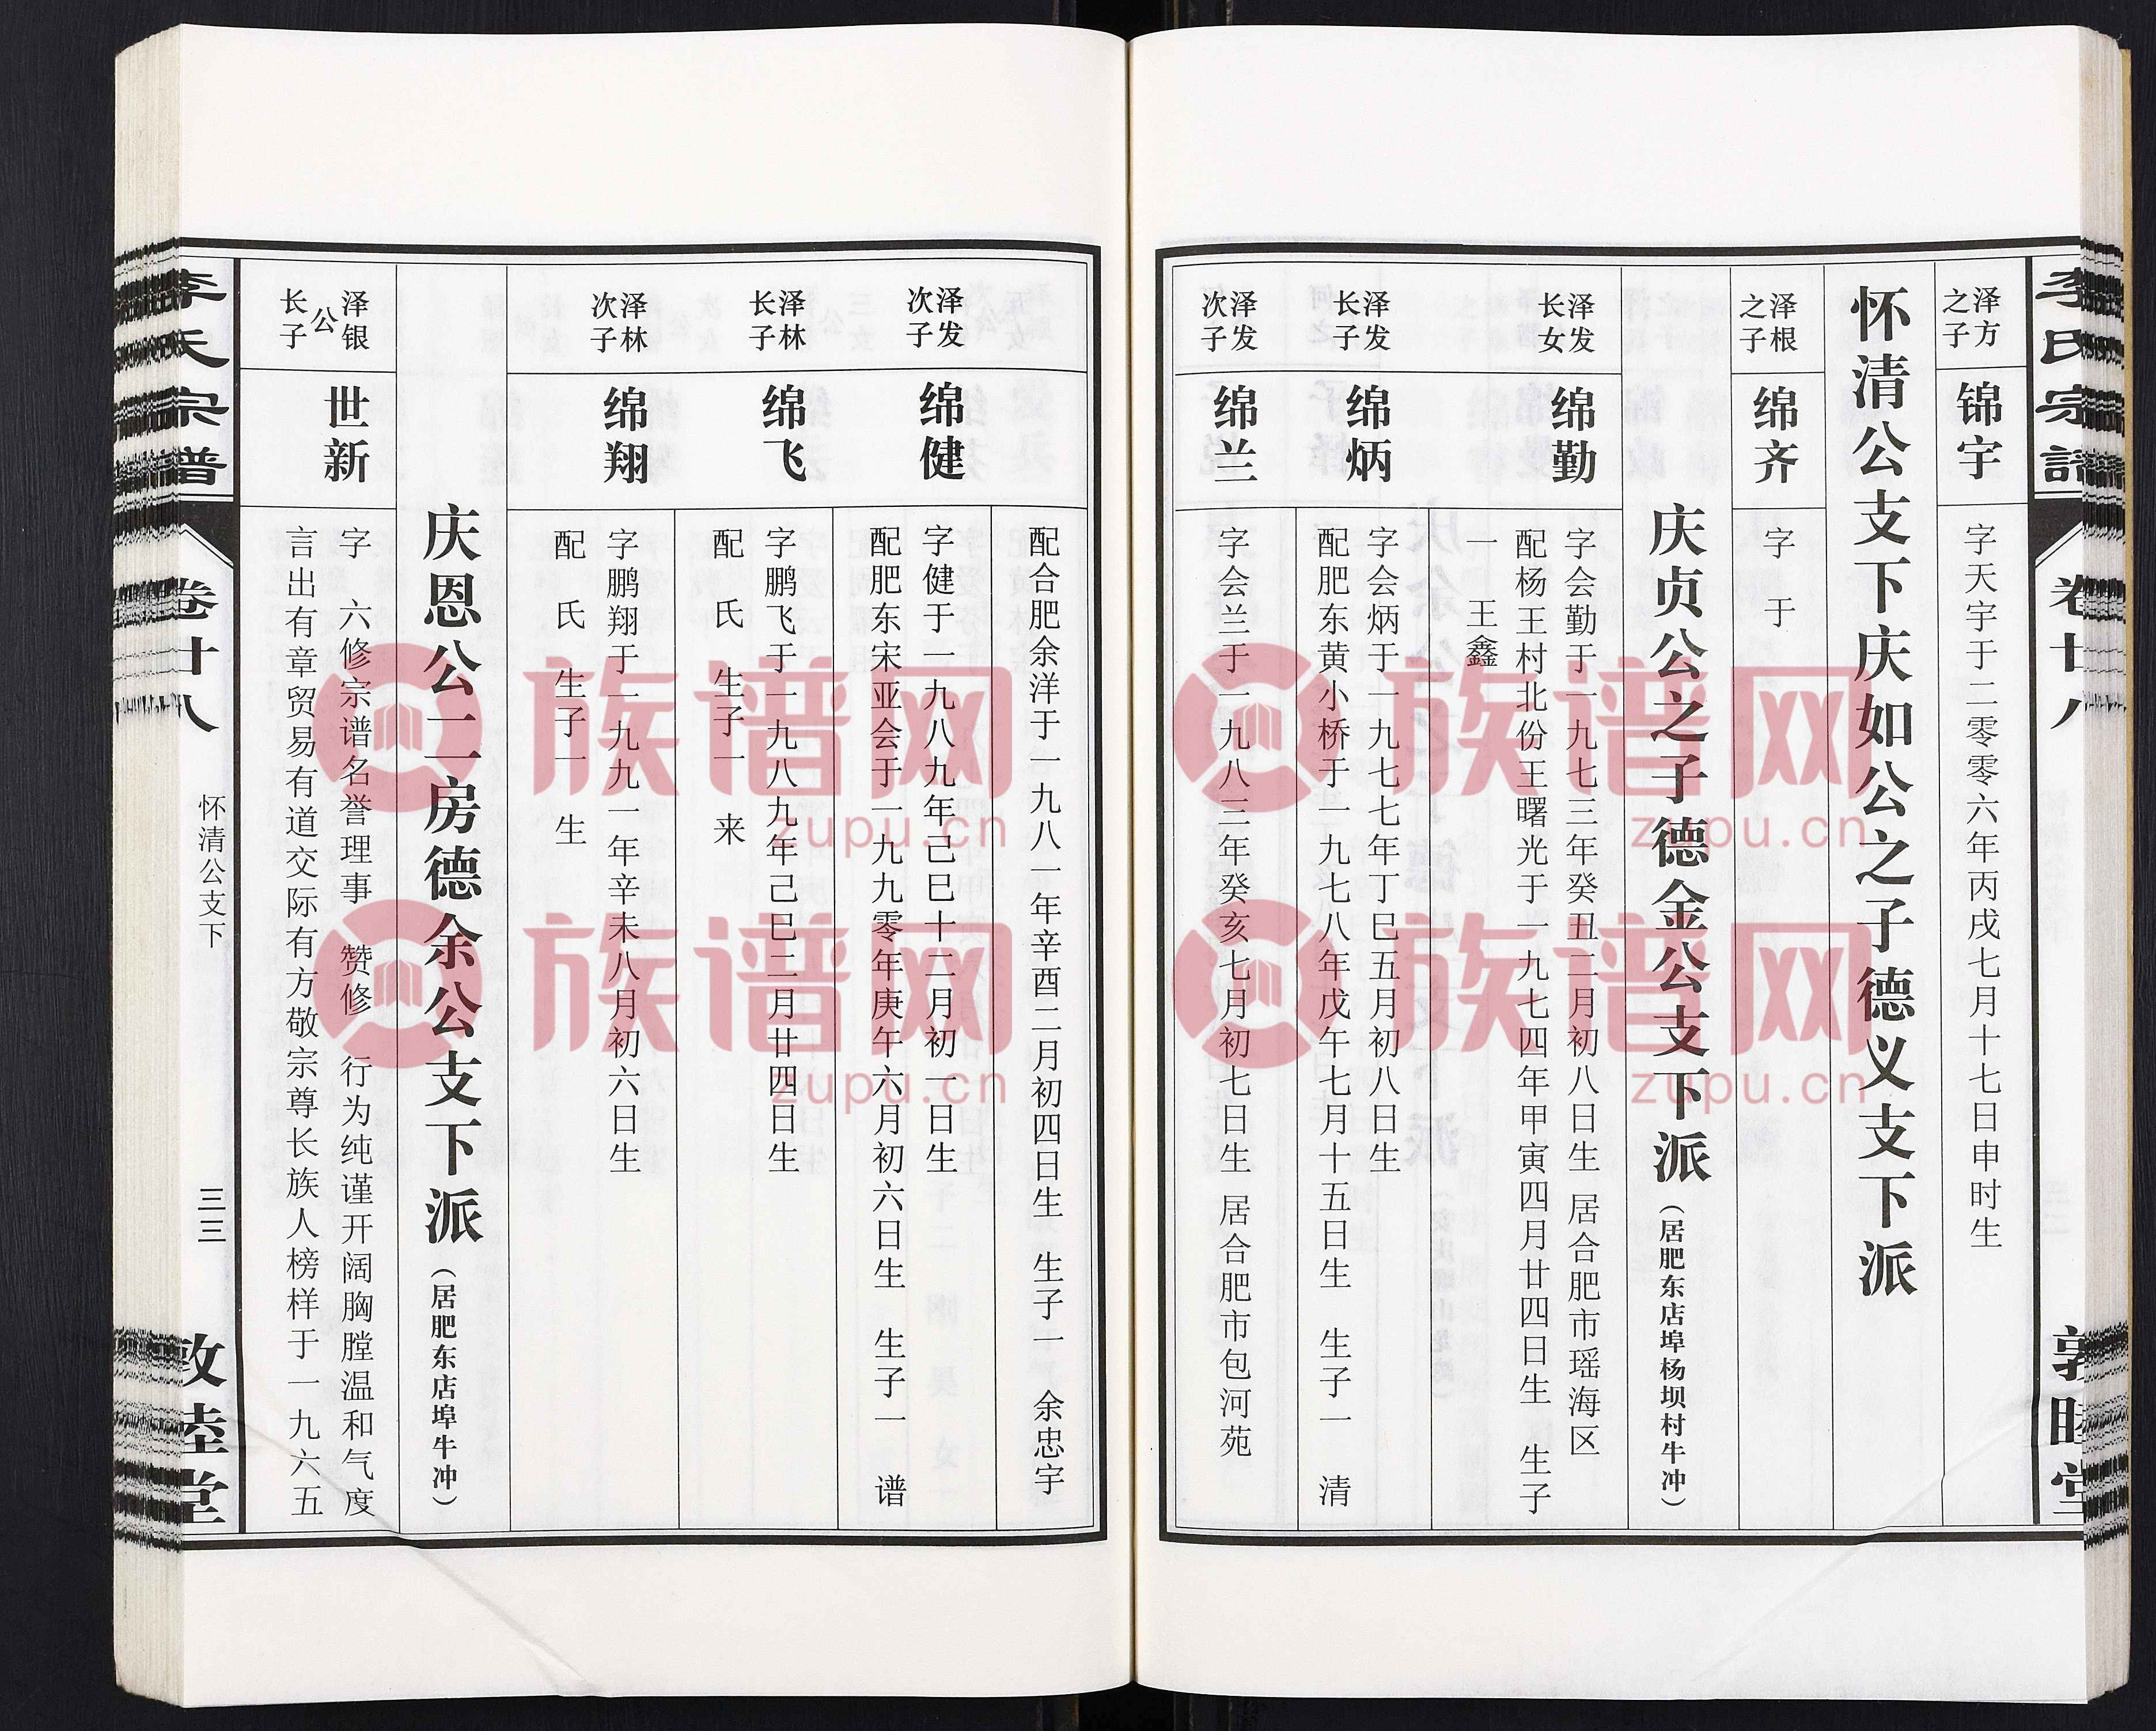 李氏宗谱
卷廿八
敦睦堂
泽方
之子
锦宇
字天宇于二零零六年丙戌七月十七日申时生
怀清公支下庆如公之子德义支下派
泽根
之子
绵齐
字 于
庆贞公之子德金公支下派（居肥东店埠杨坝村牛冲）
泽发
长女
绵勤
字会勤于一九七三年癸丑二月初八日生 居合肥市瑶海区
配杨王村北份王曙光于一九七四年甲寅四月廿四日生 生子
一 王鑫
泽发
长子
绵炳
字会炳于一九七七年丁巳五月初八日生
配肥东黄小桥于一九七八年戊午七月十五日生 生子一 清
泽发
次子
绵兰
字会兰于一九八三年癸亥七月初七日生 居合肥市包河苑
配合肥余洋于一九八一年辛酉二月初四日生 生子一 余忠宇
泽发
次子
绵健
字健于一九八九年己巳十二月初一日生
配肥东宋亚会于一九九零年庚午六月初六日生 生子一 谱
泽林
长子
绵飞
字鹏飞于一九八九年己巳二月廿四日生
配 氏 生子一 来
泽林
次子
绵翔
字鹏翔于一九九一年辛未八月初六日生
配 氏 生子一 生
庆恩公二房德余公支下派（居肥东店埠牛冲）
泽银
公
长子
世新
字 六修宗谱名誉理事 赞修 行为纯谨开阔胸膛温和气度
言出有章贸易有道交际有方敬宗尊长族人榜样于一九六五
李氏宗谱
卷廿八
怀清公支下
三三
敦睦堂
族谱网
zupu.cn
族谱网
zupu.cn
族谱网
zupu.cn
族谱网
zupu.cn